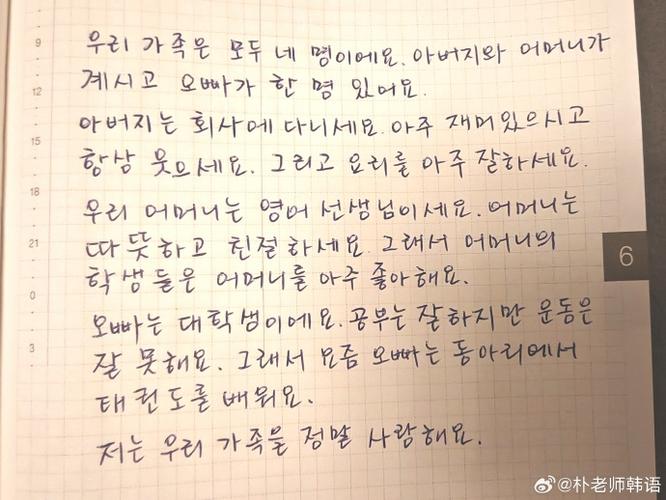 9
우리 가족은 모두 네 명이에요. 아버지와 어머니가
계시고 오빠가 한 명 있어요.
12
아버지는 회사에 다니세요. 아주 재미있으시고
15
항상 웃으세요. 그리고 요리를 아주 잘하세요.
18
우리 어머니는 영어 선생님이세요. 어머니는
21
따뜻하고 친절하세요. 그래서 어머니의
6
학생들은 어머니를 아주 좋아해요.
0
오빠는 대학생이에요. 공부는 잘하지만 운동은
3
잘 못해요. 그래서 요즘 오빠는 동아리에서
태권도를 배워요.
저는 우리 가족을 정말 사랑해요.
@朴老师韩语